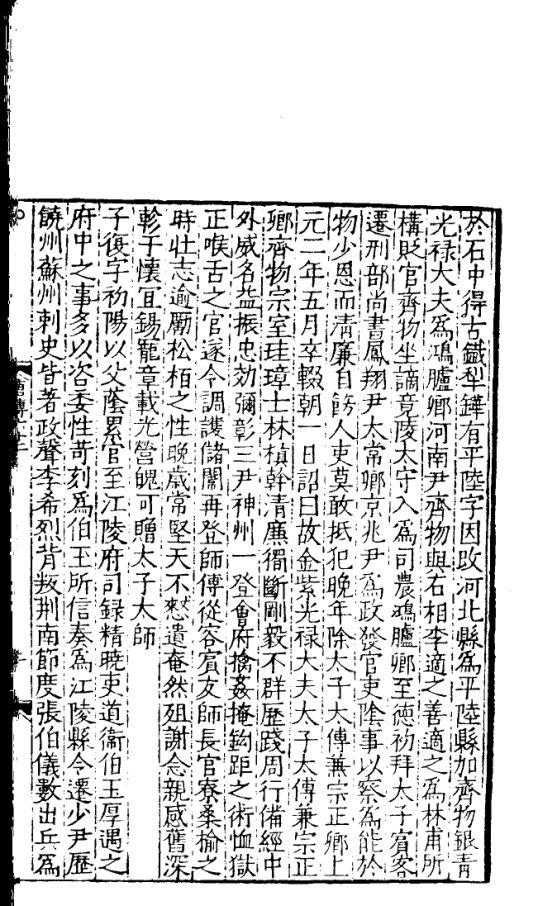 於石中得古鐵犁鏵有平陸字因改河北縣爲平陸縣加齊物銀青
光禄大夫爲鴻臚卿河南尹齊物與右相李適之善適之爲林甫所
構貶官齊物坐謫竟陵太守入爲司農鴻臚卿至德初拜太子賓客
遷刑部尚書鳳翔尹太常卿京兆尹爲政發官吏陰事以察爲能於
物少恩而清廉自飭人吏莫敢抵犯晚年除太子太傅兼宗正卿上
元二年五月卒輟朝一日詔曰故金紫光禄大夫太子太傅兼宗正
卿齊物宗室珪璋士林楨幹清廉獨斷剛毅不群歷踐周行備經中
外威名益振忠効彌彰三尹神州一登會府擒姦掩鉤距之術恤獄
正喉舌之官遂令調護儲闈再登師傅從容賓友師長官寮桑榆之
時壯志逾勵松栢之性晚歲常堅天不憗遺奄然殂謝念親感舊深
軫于懷冝錫寵章載光營魄可贈太子太師
子復字初陽以父蔭累官至江陵府司録精曉吏道衛伯玉厚遇之
府中之事多以咨委性苛刻爲伯玉所信奏爲江陵縣令遷少尹歷
饒州蘇州刺史皆著政聲李希烈背叛荆南節度張伯儀數出兵爲